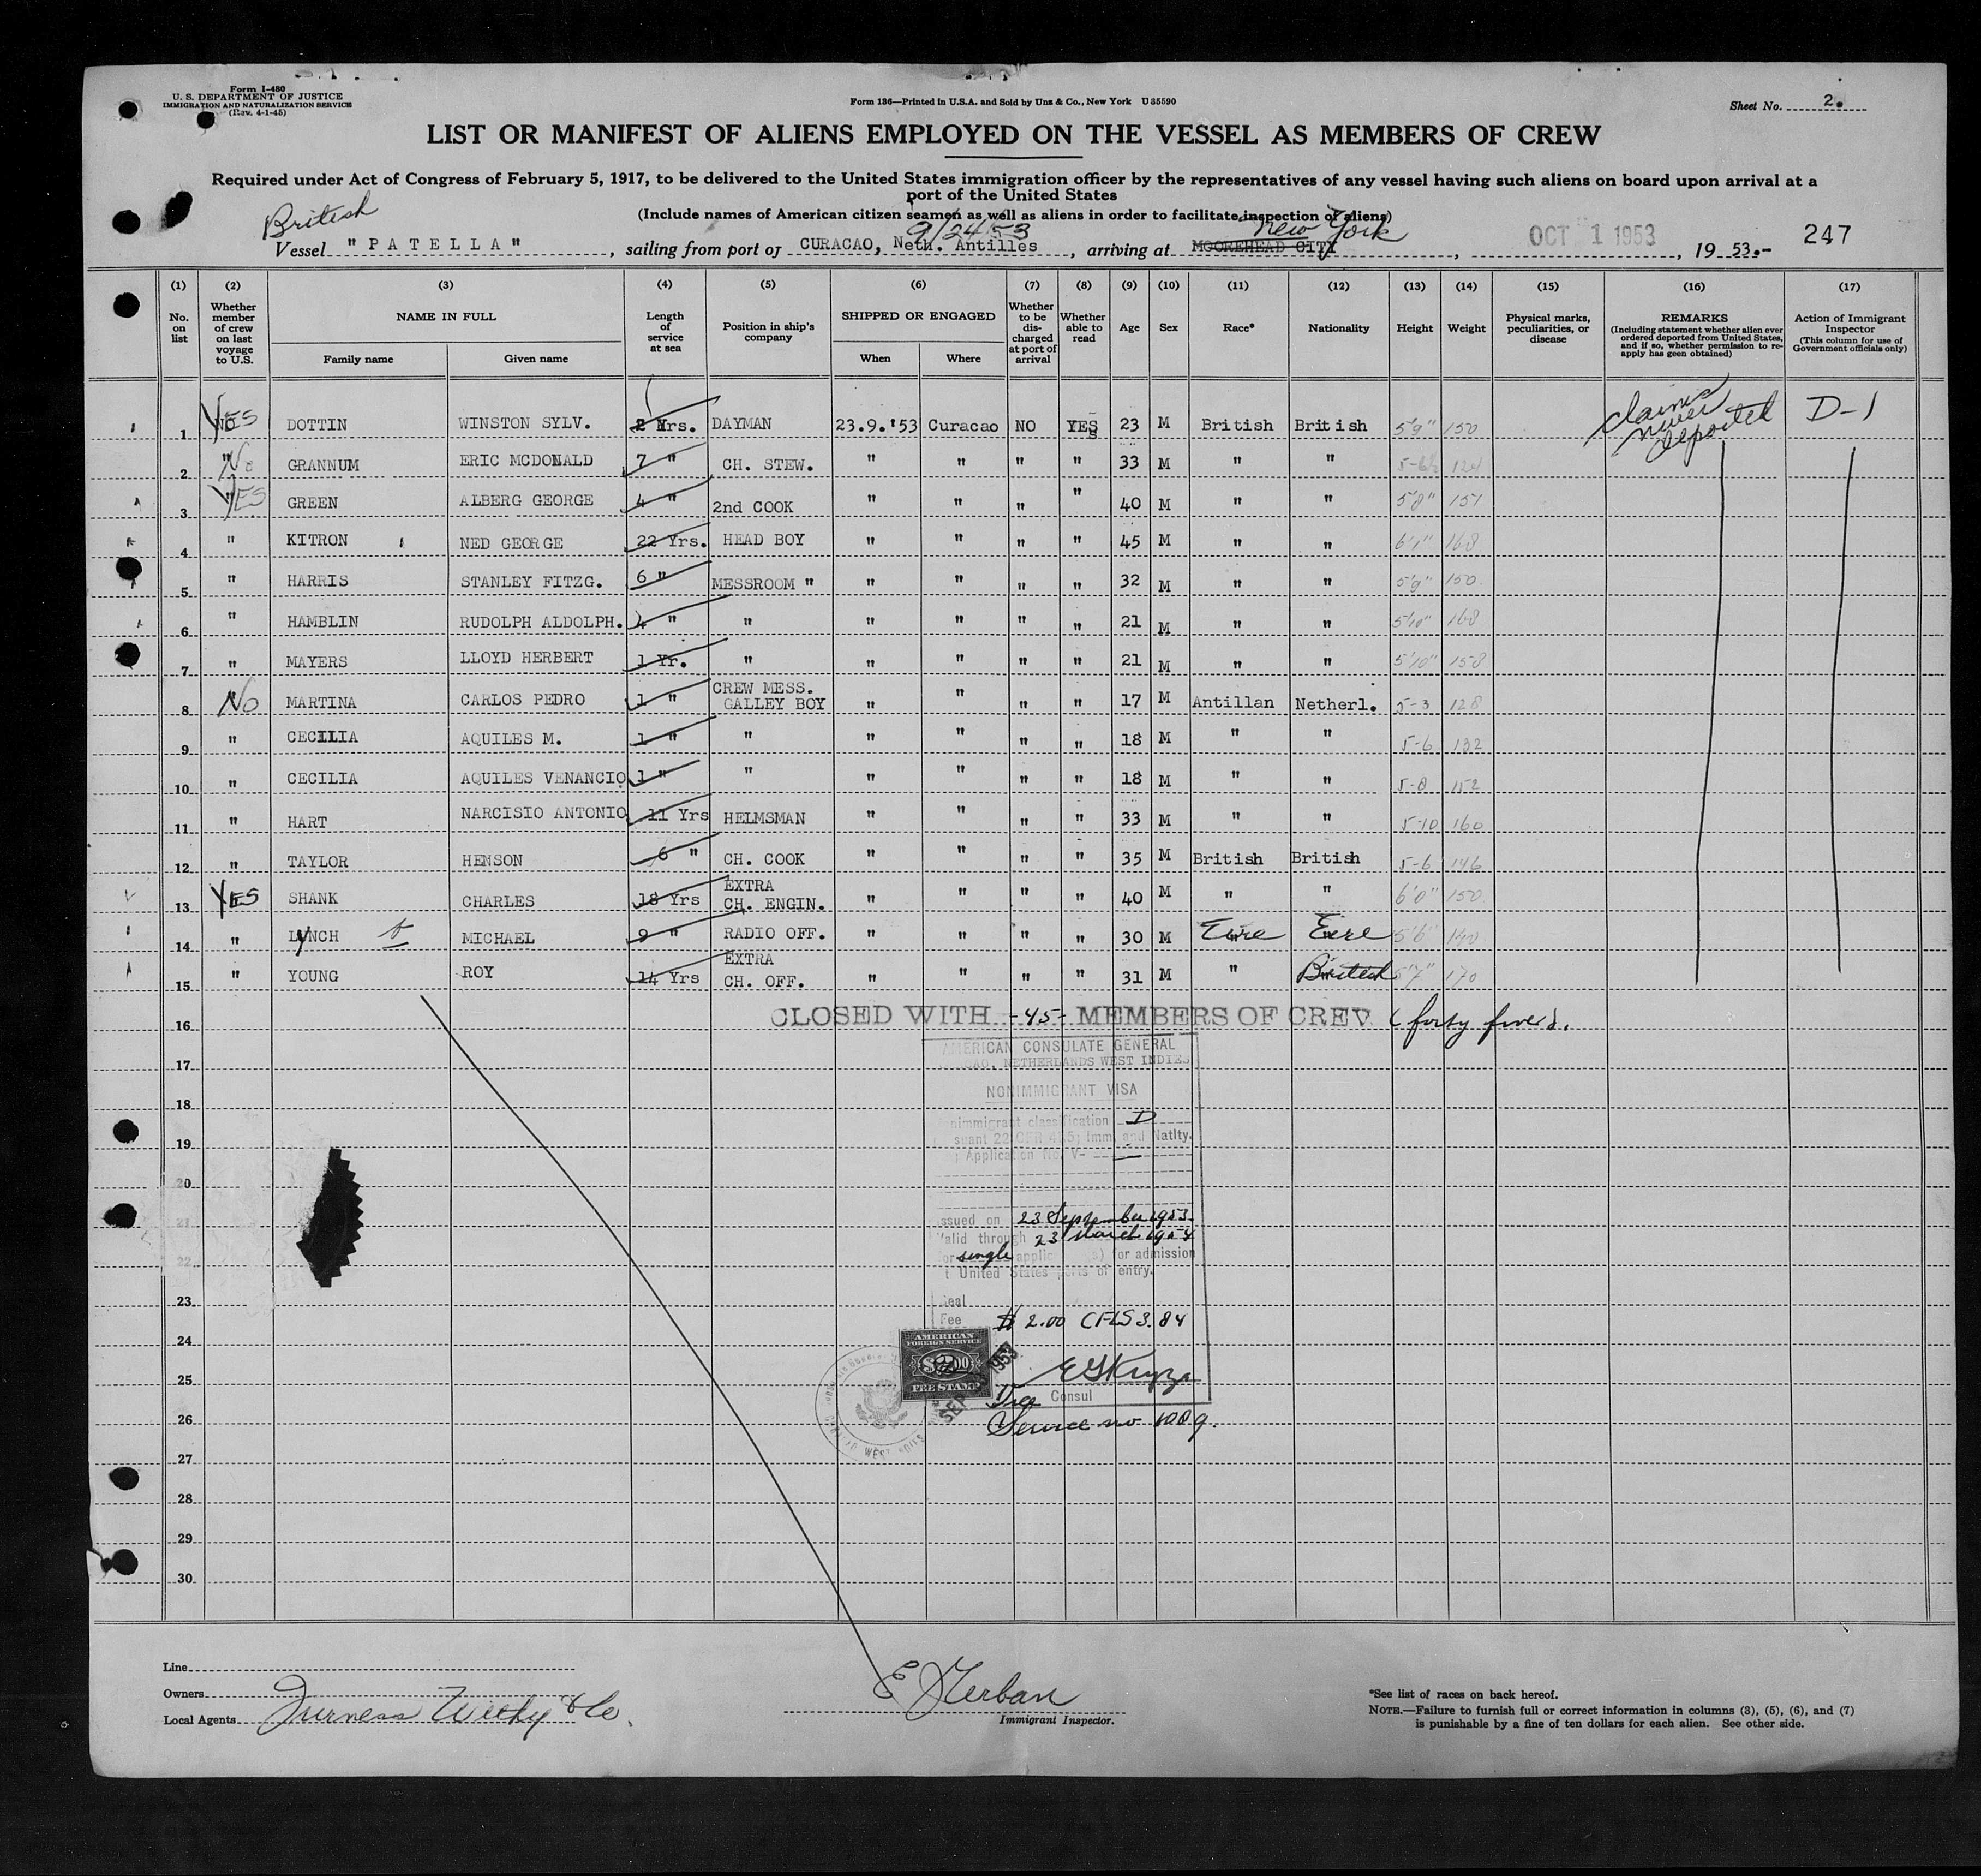 Form I-480
U. S. DEPARTMENT OF JUSTICE
IMMIGRATION AND NATURALIZATION SERVICE
(Rev. 4-1-45)
Form 136—Printed in U.S.A. and Sold by Unz & Co., New York U 35590
Sheet No. 2.
LIST OR MANIFEST OF ALIENS EMPLOYED ON THE VESSEL AS MEMBERS OF CREW
Required under Act of Congress of February 5, 1917, to be delivered to the United States immigration officer by the representatives of any vessel having such aliens on board upon arrival at a
port of the United States
(Include names of American citizen seamen as well as aliens in order to facilitate inspection of aliens)
British 9/24/53 New York
Vessel "PATELLA", sailing from port of CURACAO, Neth. Antilles, arriving at MOOREHEAD CITY, OCT 1 1953, 19 53.- 247
(1) (2) (3) (4) (5) (6) (7) (8) (9) (10) (11) (12) (13) (14) (15) (16) (17)
No. on list
Whether member of crew on last voyage to U.S.
NAME IN FULL
Family name Given name
Length of service at sea
Position in ship's company
SHIPPED OR ENGAGED
When Where
Whether to be discharged at port of arrival
Whether able to read
Age Sex Race* Nationality Height Weight
Physical marks, peculiarities, or disease
REMARKS
(Including statement whether alien ever ordered deported from United States, and if so, whether permission to re-apply has geen obtained)
Action of Immigrant Inspector
(This column for use of Government officials only)
1 YES DOTTIN WINSTON SYLV. 2 Yrs. DAYMAN 23.9.'53 Curacao NO YES 23 M British British 5'9" 150 claims never deported D-1
2 No GRANNUM ERIC MCDONALD 7 " CH. STEW. " " " " 33 M " " 5-6½ 124
3 YES GREEN ALBERG GEORGE 4 " 2nd COOK " " " " 40 M " " 5'8" 151
4 " KITRON NED GEORGE 22 Yrs. HEAD BOY " " " " 45 M " " 6'1" 168
5 " HARRIS STANLEY FITZG. 6 " MESSROOM " " " " " 32 M " " 5'9" 150
6 " HAMBLIN RUDOLPH ALDOLPH. 4 " " " " " " 21 M " " 5'10" 168
7 " MAYERS LLOYD HERBERT 1 Yr. " " " " " 21 M " " 5'10" 158
8 No MARTINA CARLOS PEDRO 1 " CREW MESS. GALLEY BOY " " " " 17 M Antillan Netherl. 5-3 128
9 " CECILIA AQUILES M. 1 " " " " " " 18 M " " 5-6 132
10 " CECILIA AQUILES VENANCIO 1 " " " " " " 18 M " " 5-8 152
11 " HART NARCISIO ANTONIO 11 Yrs HELMSMAN " " " " 33 M " " 5-10 160
12 " TAYLOR HENSON 6 " CH. COOK " " " " 35 M British British 5-6 146
13 YES SHANK CHARLES 18 Yrs EXTRA CH. ENGIN. " " " " 40 M " " 6'0" 150
14 " LYNCH MICHAEL 9 " RADIO OFF. " " " " 30 M Eire Eire 5'6" 140
15 " YOUNG ROY 14 Yrs EXTRA CH. OFF. " " " " 31 M " British 5'7" 170
16 CLOSED WITH -45- MEMBERS OF CREW (forty five).
AMERICAN CONSULATE GENERAL
17 CURACAO, NETHERLANDS WEST INDIES
NONIMMIGRANT VISA
18
nimmigrant classification D
19 suant 22 CFR 41.5; Imm. and Natlty.
Application No. V- —
20
21 issued on 23 September 1953
Valid through 23 March 1954
22 for single applic s) for admission
t United States ports of entry.
23 Seal
Fee $ 2.00 CFLS 3.84
24
AMERICAN
FOREIGN SERVICE
$2.00
FEE STAMP
SEP 1953
25
Vice Consul
26 Service no 1009.
WEST INDIES
27
28
29
30
Line
Owners
Local Agents Furness Withy & Co.
E Gerban
Immigrant Inspector.
*See list of races on back hereof.
NOTE.—Failure to furnish full or correct information in columns (3), (5), (6), and (7)
is punishable by a fine of ten dollars for each alien. See other side.